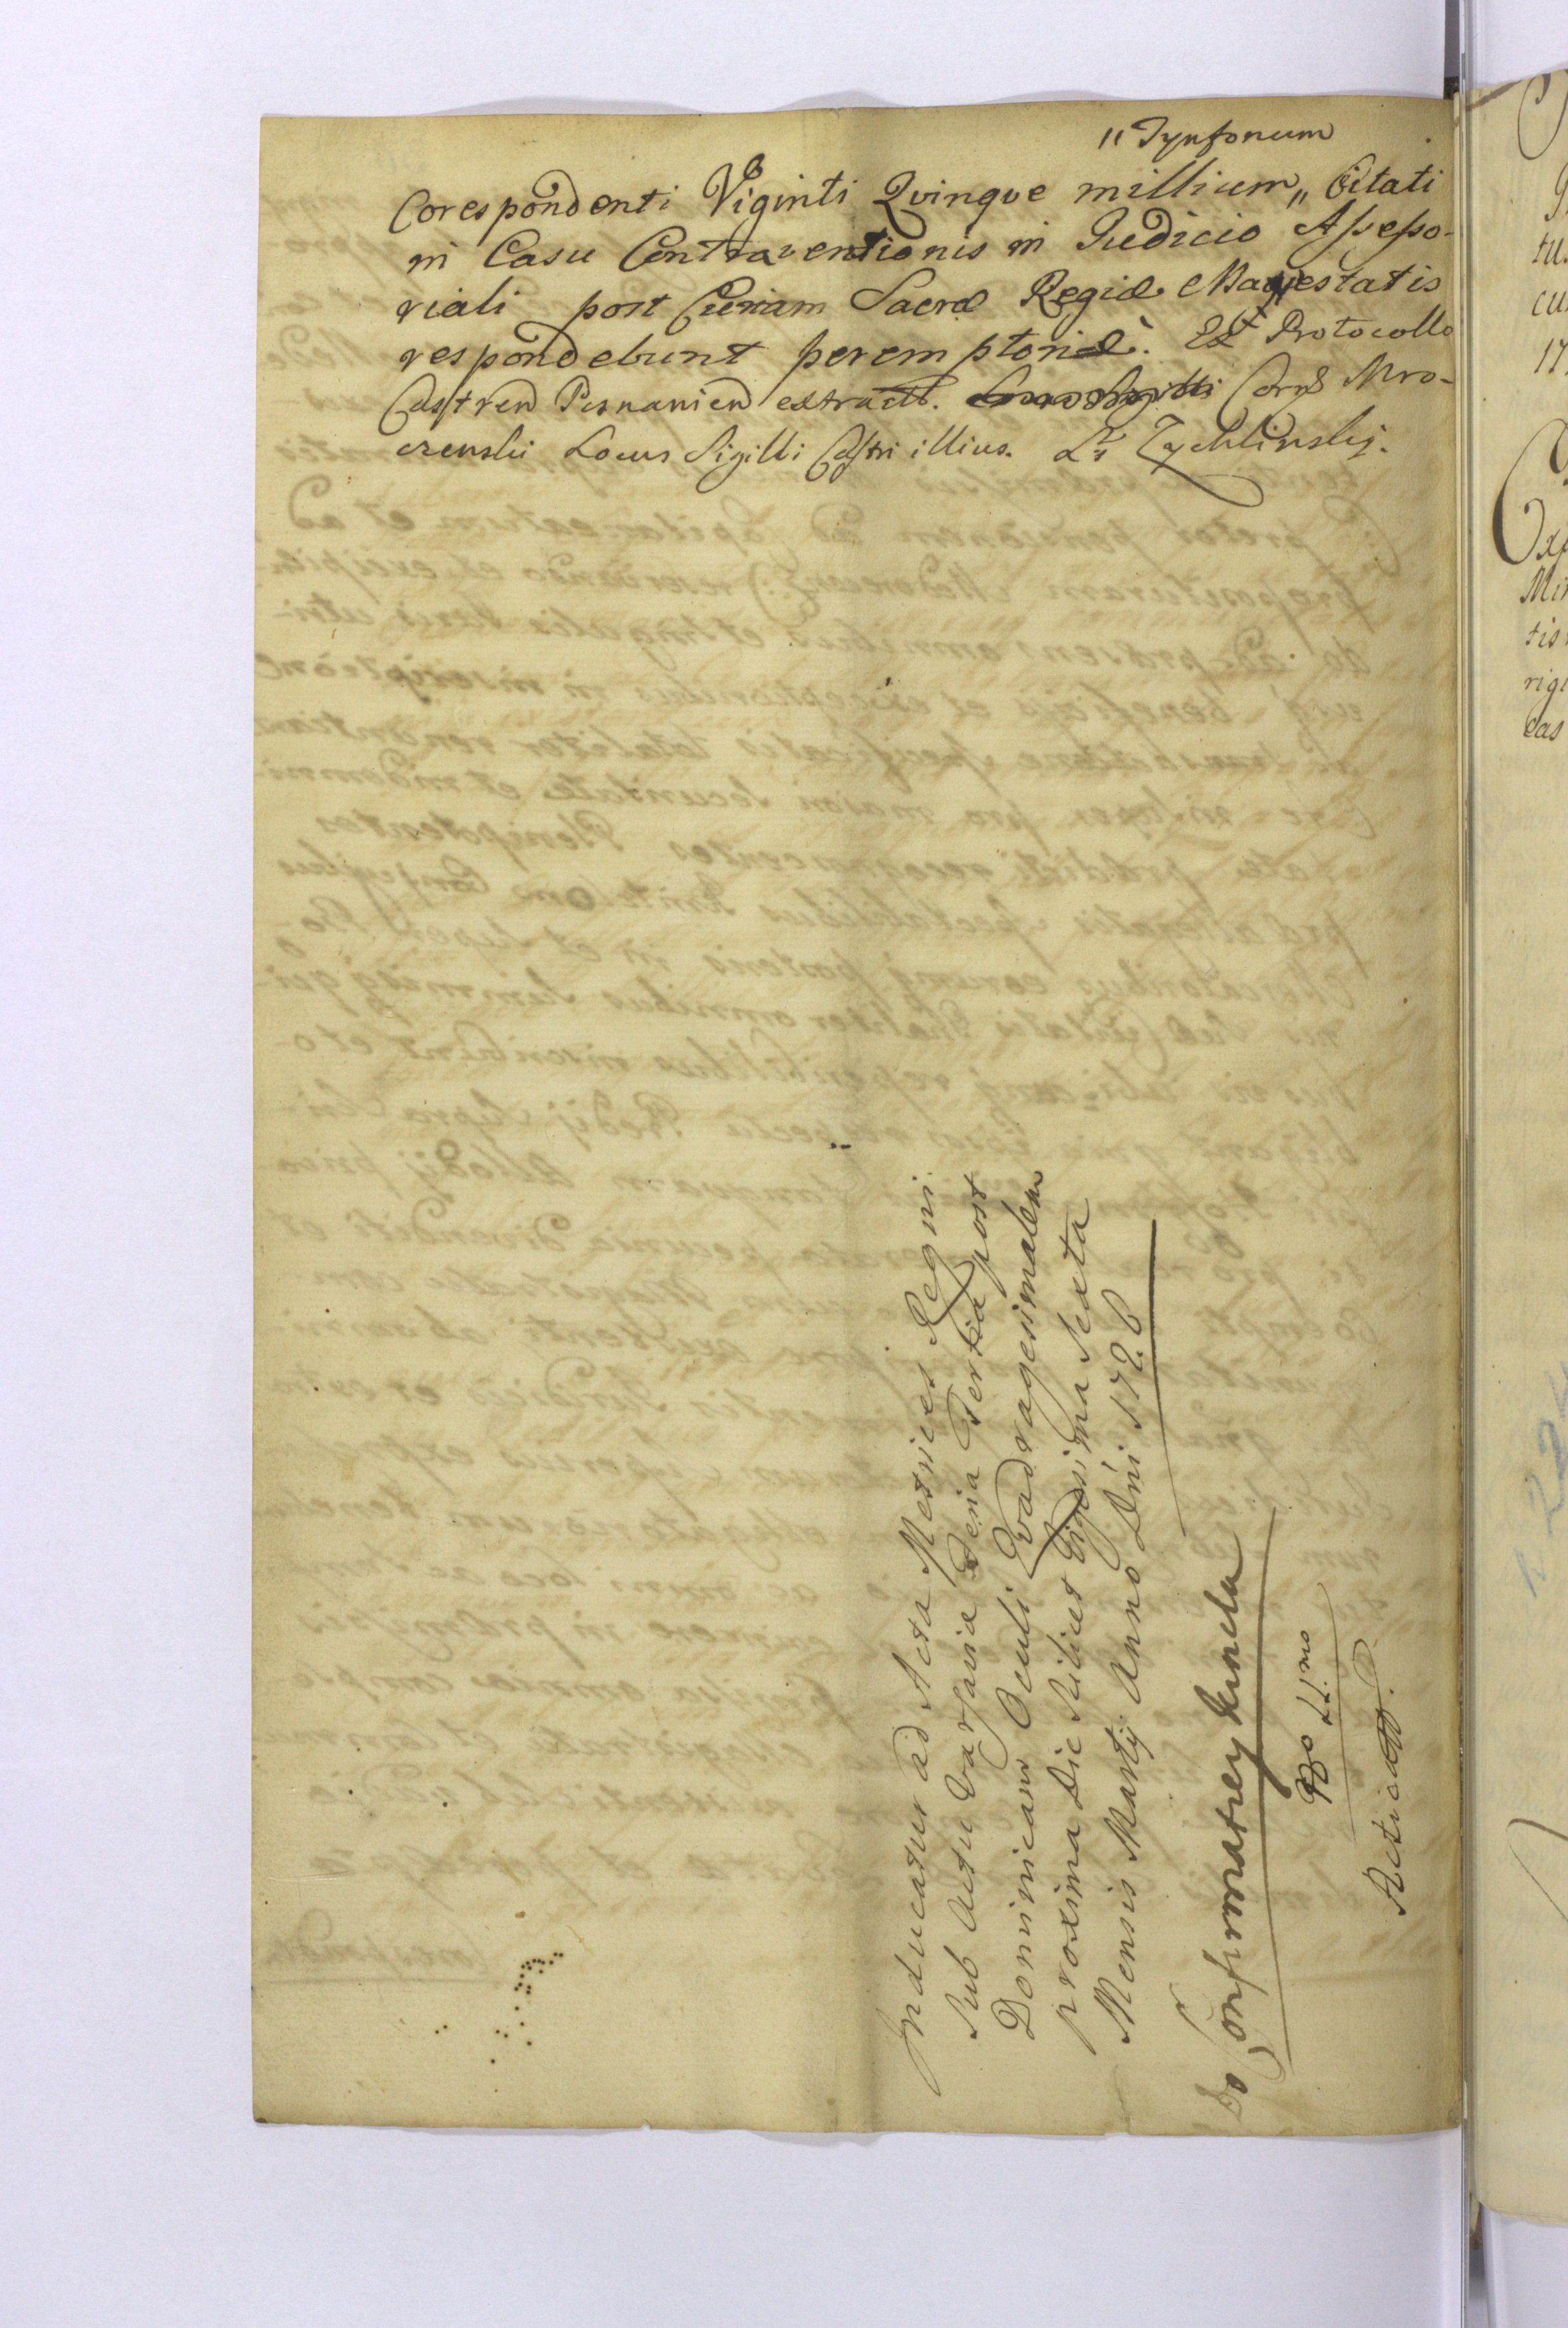 " Tynfonum
Corespondenti Viginti Qvinqve millium " Citati
in Casu Contraventionis in Judicio Assesso-
riali post Curiam Sacræ Regiæ Majestatis
respondebunt peremptoriè. Ex Protocollo
Castren Posnanien extract. Corr Mro-
czenski Locus Sigilli Castri illius. Lt Zychlinskj.
Inducatur ad Acta Metrices Regni
sub Actu Varsaviæ Feria Tertia post
Dominicam Oculi Qvadragesimalem
proxima Die scilicet Vigesima Sexta
Mensis Martij Anno Dńi 1726
Do Confirmatrey